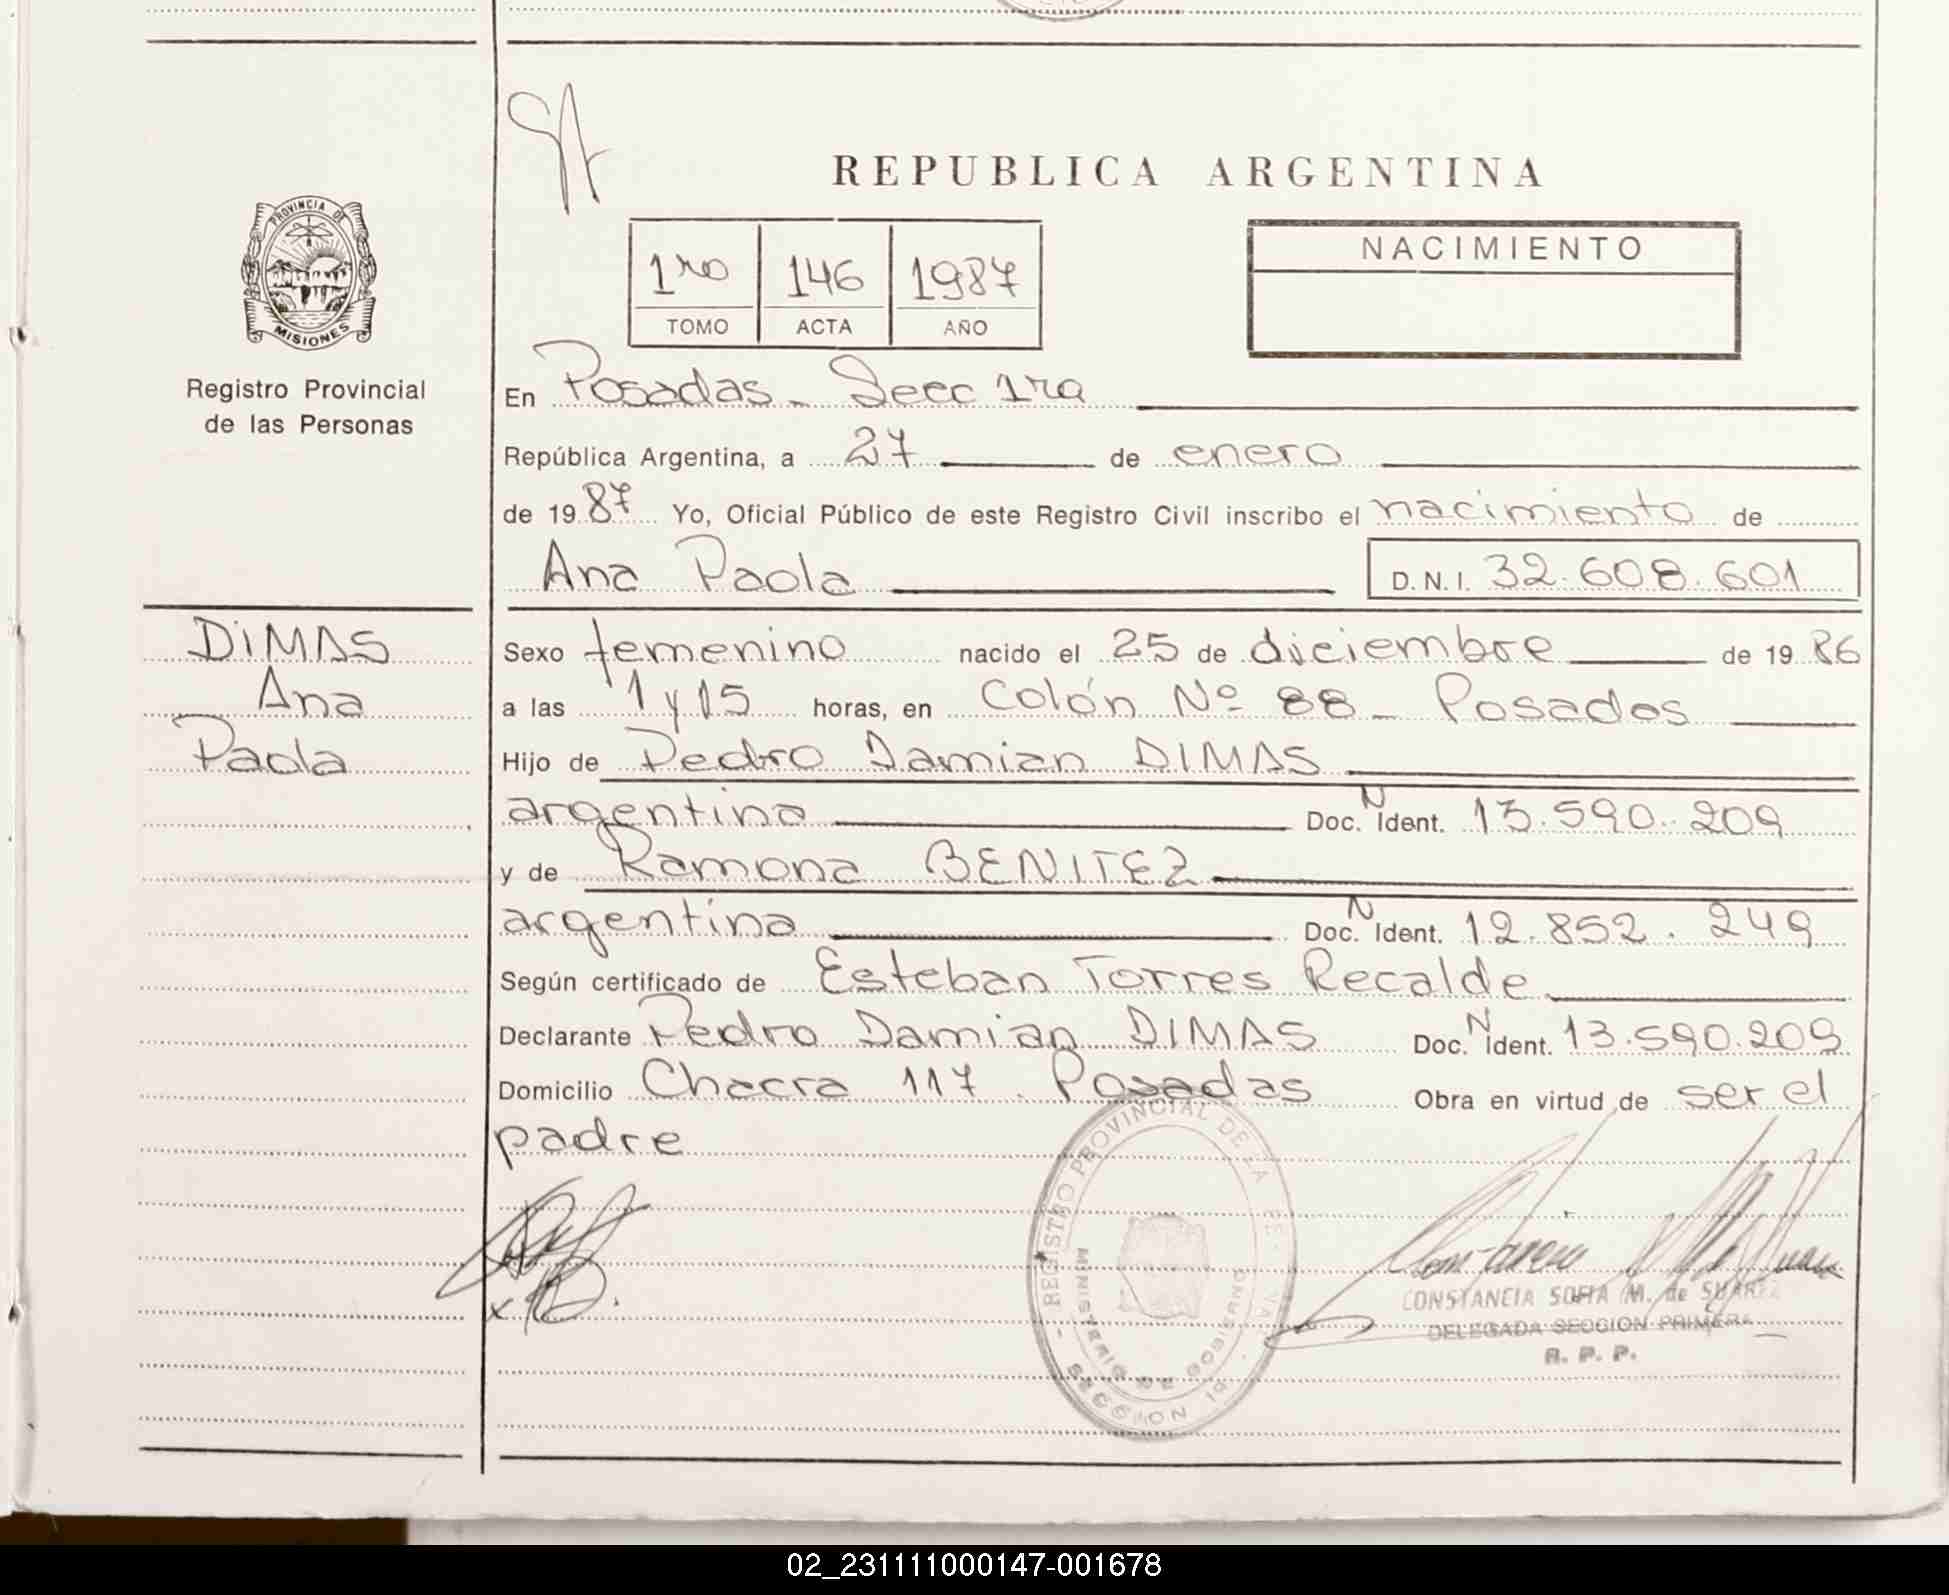 REPUBLICA ARGENTINA
PROVINCIA DE
MISIONES
Registro Provincial
de las Personas
1ro 146 1987
TOMO ACTA AÑO
NACIMIENTO
En Posadas - Secc 1ra
República Argentina, a 27 de enero
de 1987 Yo, Oficial Público de este Registro Civil inscribo el nacimiento de
Ana Paola D.N.I. 32.608.601
DIMAS
Ana
Paola
Sexo femenino nacido el 25 de diciembre de 1986
a las 1 y 15 horas, en Colón Nº 88 - Posadas
Hijo de Pedro Damian DIMAS
argentino Doc. N Ident. 13.590.209
y de Ramona BENITEZ
argentina Doc. N Ident. 12.852.249
Según certificado de Esteban Torres Recalde
Declarante Pedro Damian DIMAS Doc. N Ident. 13.590.209
Domicilio Chacra 117 Posadas Obra en virtud de ser el
padre
REGISTRO PROVINCIAL DE LA
MINISTERIO DE GOBIERNO
SECCION 1a
CONSTANCIA SOFIA M. de SUAREZ
DELEGADA SECCION PRIMERA
R. P. P.
02_231111000147-001678